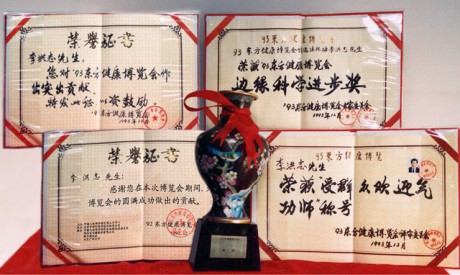 荣誉证书
李洪志先生:
您对'93东方健康博览会作
出突出贡献,
特发此证以资鼓励
'93东方健康博览会
1993年12月
93东方健康博览会
荣获'93东方健康博览会
边缘科学进步奖
'93东方健康博览会评审委员会
1993年12月
荣誉证书
李洪志先生:
感谢您在本次博览会期间,为
博览会的圆满成功做出的贡献。
'93东方健康博览会
93东方健康博览
李洪志先生
荣获受群众欢迎气
功师"称号
'93东方健康博览会评审委员会
1993年12月